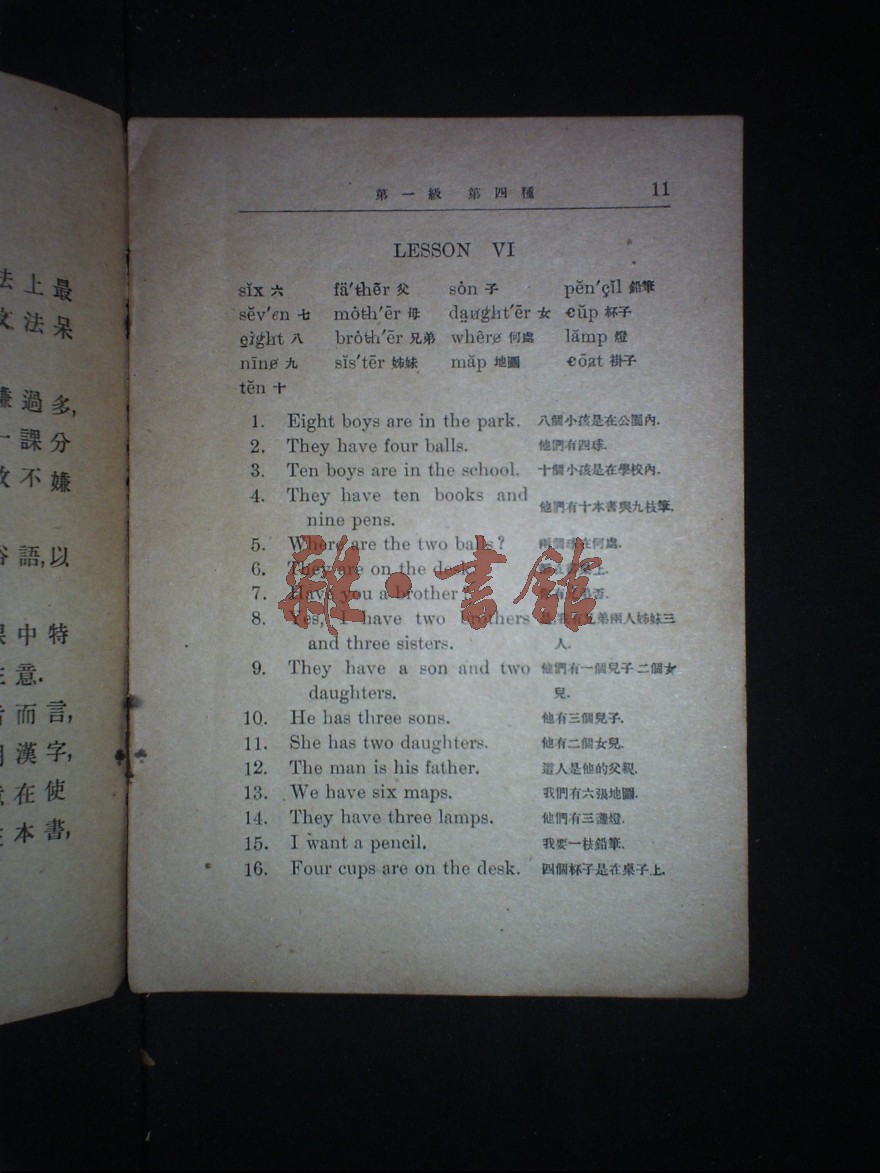 法上最
文法呆
嫌過多,
一課分
故不嫌
俗語,以
中特
意.
而言,
漢字,
在使
本書,
第一級 第四種 11
LESSON VI
sĭx 六 fä′thẽr 父 sȯn 子 pĕn′çĭl 鉛筆
sĕv′en 七 mȯth′ẽr 母 da̤ught′ẽr 女 cŭp 杯子
eight 八 brȯth′ẽr 兄弟 whêre 何處 lămp 燈
nīne 九 sĭs′tẽr 姊妹 măp 地圖 cōat 褂子
tĕn 十
1. Eight boys are in the park. 八個小孩是在公園內.
2. They have four balls. 他們有四球.
3. Ten boys are in the school. 十個小孩是在學校內.
4. They have ten books and
nine pens. 他們有十本書與九枝筆.
5. Where are the two balls? 兩個球在何處.
6. They are on the desk. 上.
7. Have you a brother? 否.
8. Yes, I have two brothers 我有兄弟兩人姊妹三
and three sisters. 人.
9. They have a son and two 他們有一個兒子二個女
daughters. 兒.
10. He has three sons. 他有三個兒子.
11. She has two daughters. 他有二個女兒.
12. The man is his father. 這人是他的父親.
13. We have six maps. 我們有六張地圖.
14. They have three lamps. 他們有三盞燈.
15. I want a pencil. 我要一枝鉛筆.
16. Four cups are on the desk. 四個杯子是在桌子上.
雜·書館